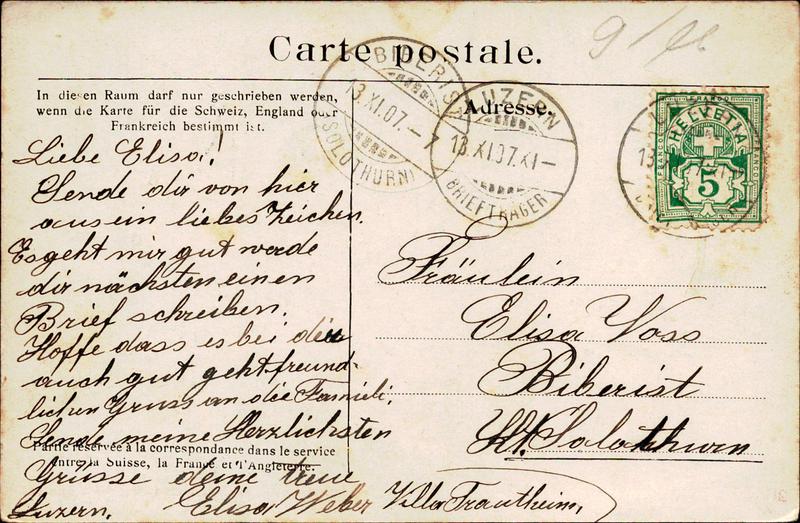 9/
Carte postale.
BIBERIST
13.XI.07.-7
(SOLOTHURN)
LUZERN
13.XI.07.XI-
BRIEFTRÄGER
HELVETIA
5
In diesen Raum darf nur geschrieben werden,
wenn die Karte für die Schweiz, England oder
Frankreich bestimmt ist.
Adresse.
Liebe Elisa!
Sende dir von hier
aus ein liebes Zeichen.
Es geht mir gut werde
dir nächsten einen
Brief schreiben.
Hoffe dass es bei dir
auch gut geht freund-
lichen Gruss an die Famili.
Sende meine Herzlichsten
Partie réservée à la correspondance dans le service
entre la Suisse, la France et l'Angleterre.
Grüsse deine treue
Luzern. Elisa Weber Villa Trautheim,
Fräulein
Elisa Voss
Biberist
Kt. Solothurn